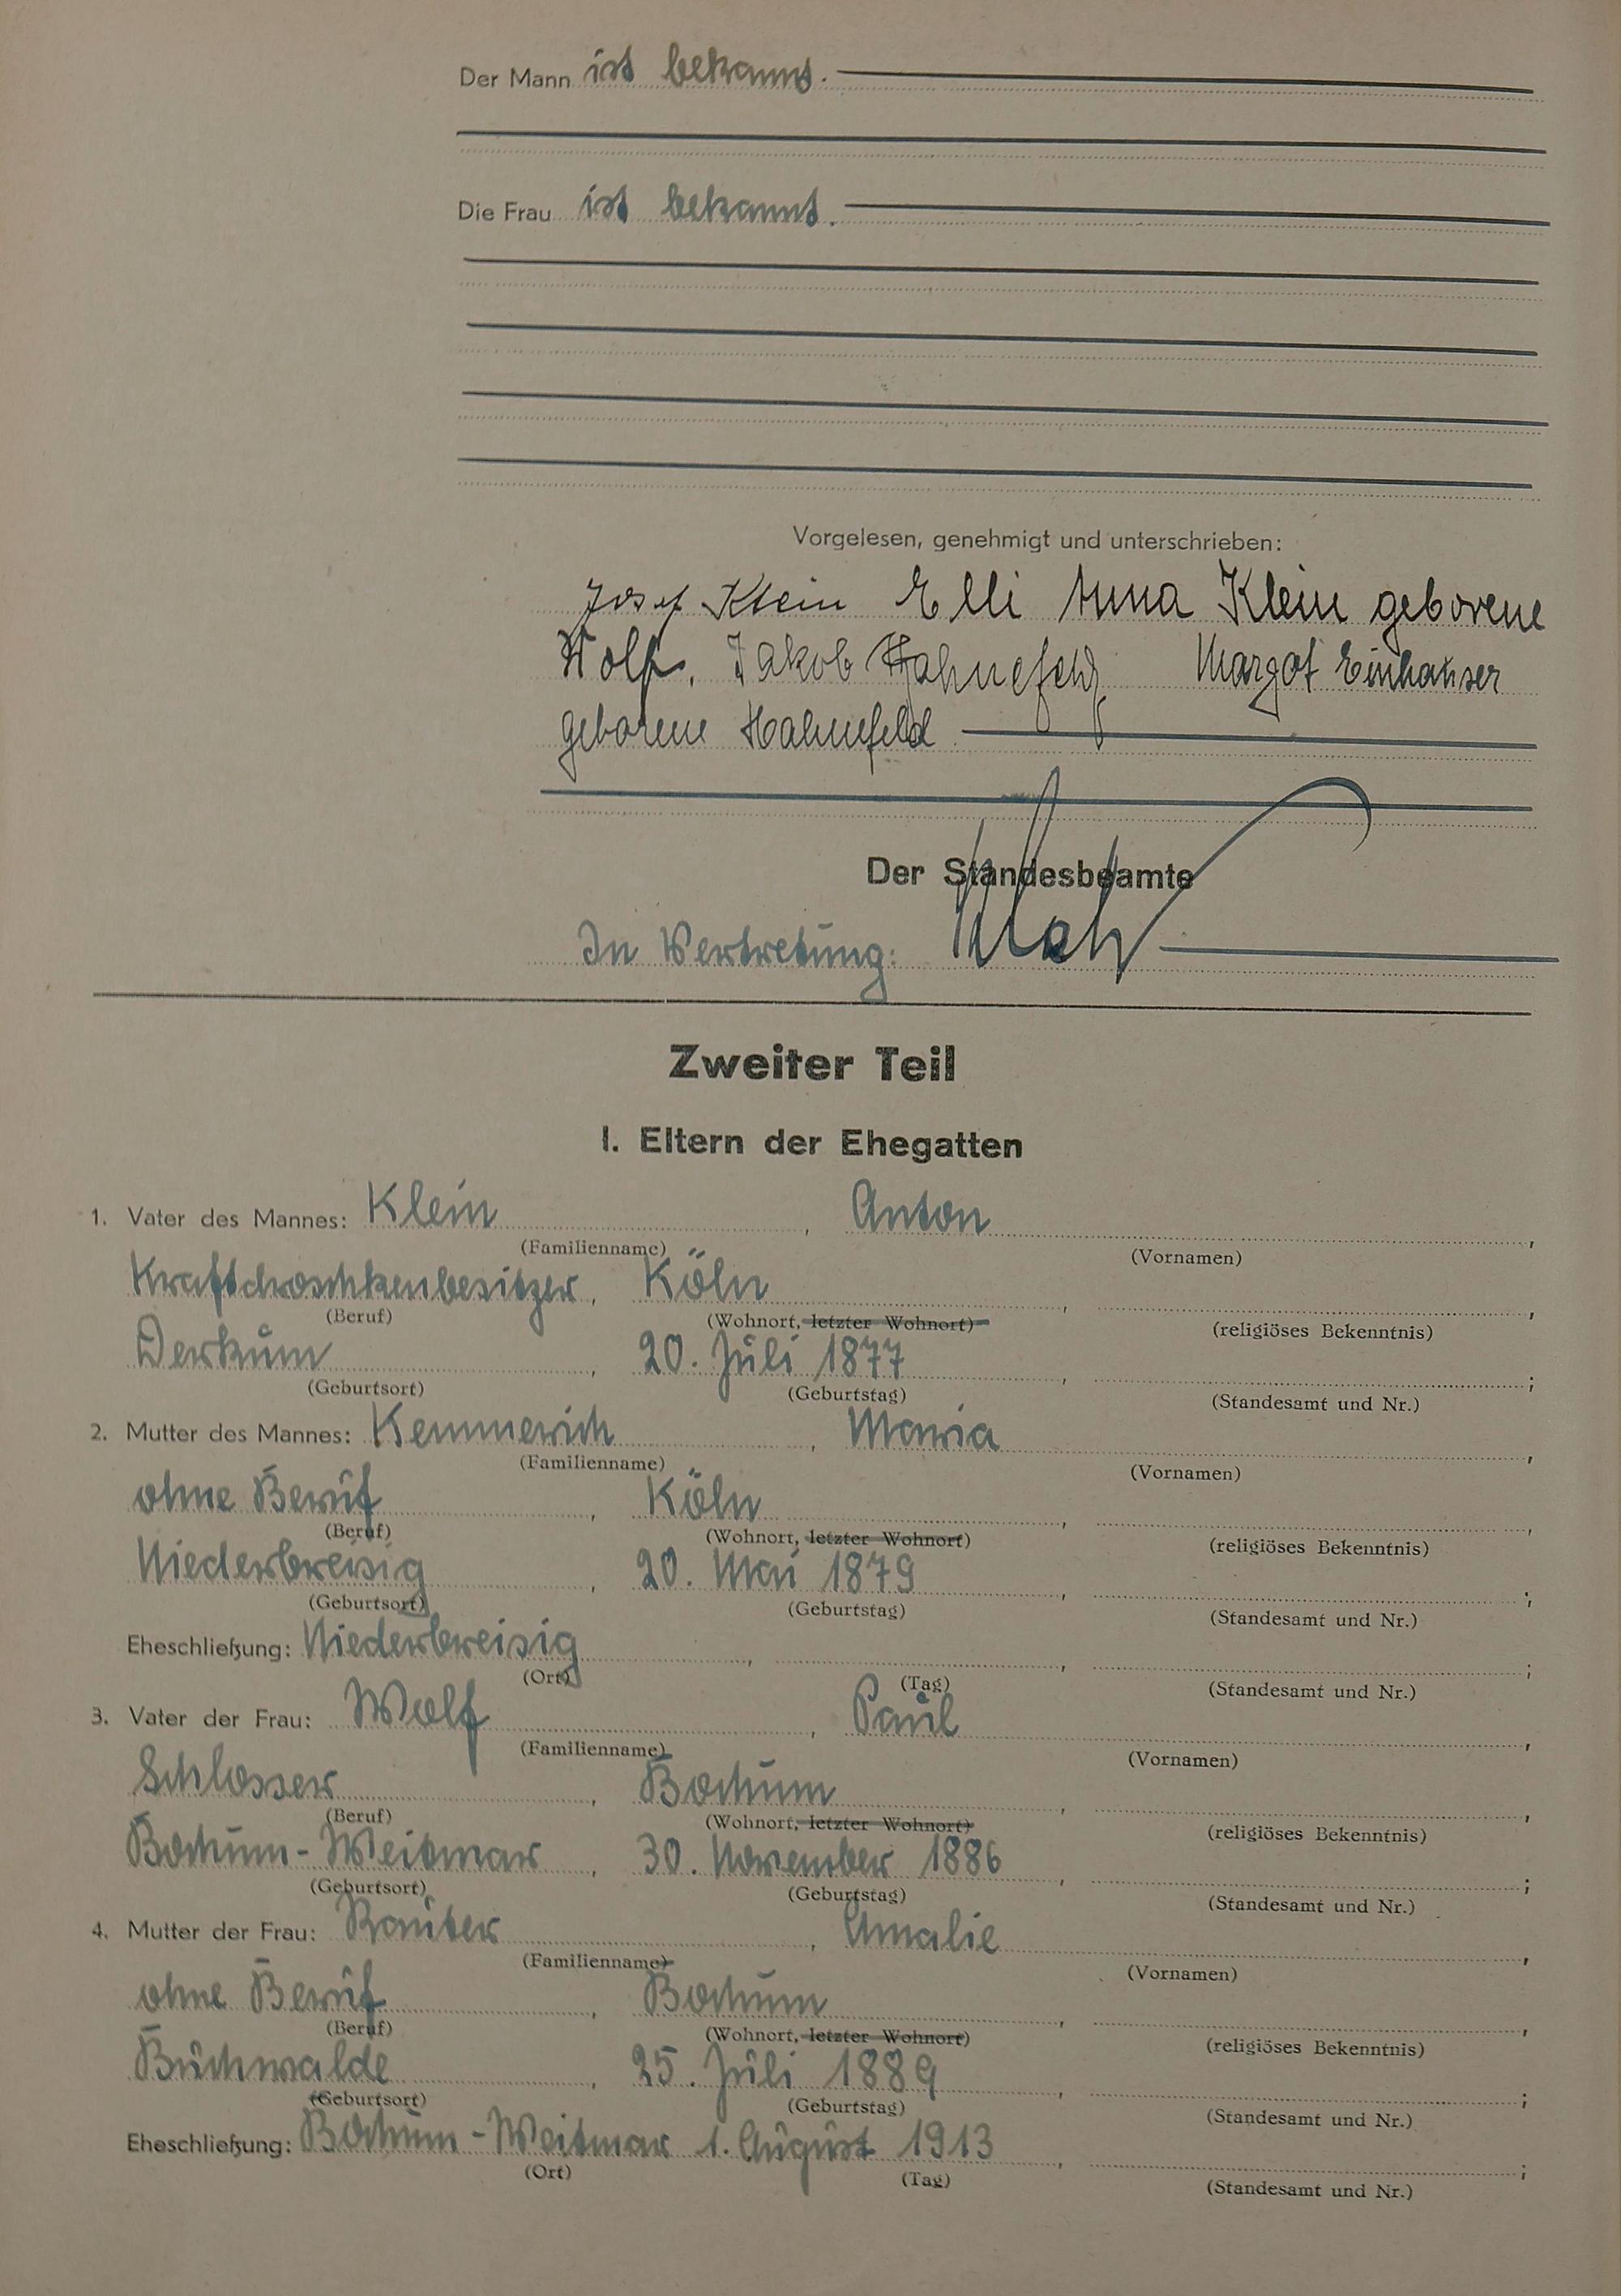 Der Mann ist bekannt.
Die Frau ist bekannt.
Vorgelesen, genehmigt und unterschrieben:
Josef Klein Elli Anna Klein geborene
Wolf. Jakob Hahnefeld Margot Einhäuser
geborene Hahnefeld
Der Standesbeamte
In Vertretung:
Zweiter Teil
I. Eltern der Ehegatten
1. Vater des Mannes: Klein, Anton,
(Familienname) (Vornamen)
Kraftdroschkenbesitzer, Köln, ,
(Beruf) (Wohnort, letzter Wohnort) (religiöses Bekenntnis)
Derkum, 20. Juli 1877, ;
(Geburtsort) (Geburtstag) (Standesamt und Nr.)
2. Mutter des Mannes: Kemmerich, Maria,
(Familienname) (Vornamen)
ohne Beruf, Köln, ,
(Beruf) (Wohnort, letzter Wohnort) (religiöses Bekenntnis)
Niederbreisig, 20. Mai 1879, ;
(Geburtsort) (Geburtstag) (Standesamt und Nr.)
Eheschließung: Niederbreisig, , ;
(Ort) (Tag) (Standesamt und Nr.)
3. Vater der Frau: Wolf, Paul,
(Familienname) (Vornamen)
Schlosser, Bochum, ,
(Beruf) (Wohnort, letzter Wohnort) (religiöses Bekenntnis)
Bochum-Weitmar, 30. November 1886, ;
(Geburtsort) (Geburtstag) (Standesamt und Nr.)
4. Mutter der Frau: Rauter, Amalie,
(Familienname) (Vornamen)
ohne Beruf, Bochum, ,
(Beruf) (Wohnort, letzter Wohnort) (religiöses Bekenntnis)
Buchwalde, 25. Juli 1889, ;
(Geburtsort) (Geburtstag) (Standesamt und Nr.)
Eheschließung: Bochum-Weitmar 1. August 1913, ;
(Ort) (Tag) (Standesamt und Nr.)